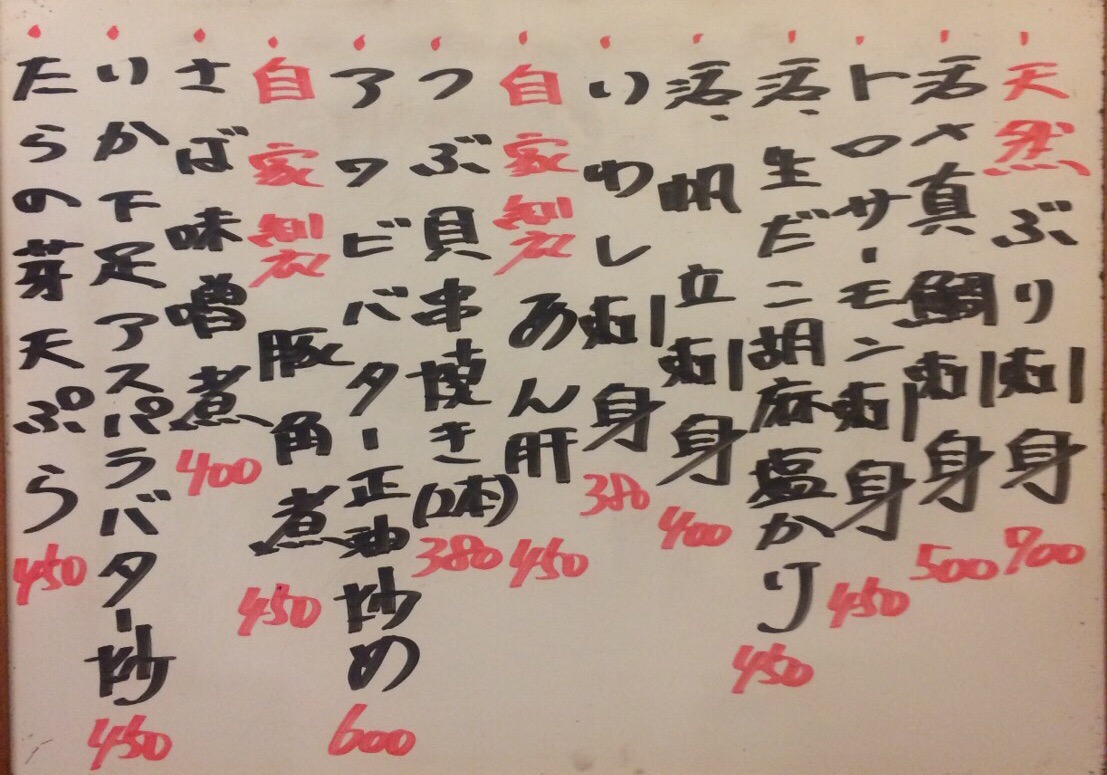 天然ぶり刺身700
活〆真鯛刺身500
トロサーモン刺身450
活、生だこ胡麻塩かり450
活、帆立刺身400
いわし刺身380
自家製あん肝450
つぶ貝串焼き(2本)380
アワビバター正油炒め600
自家製豚角煮450
さば味噌煮400
いか下足アスパラバター炒450
たらの芽天ぷら450